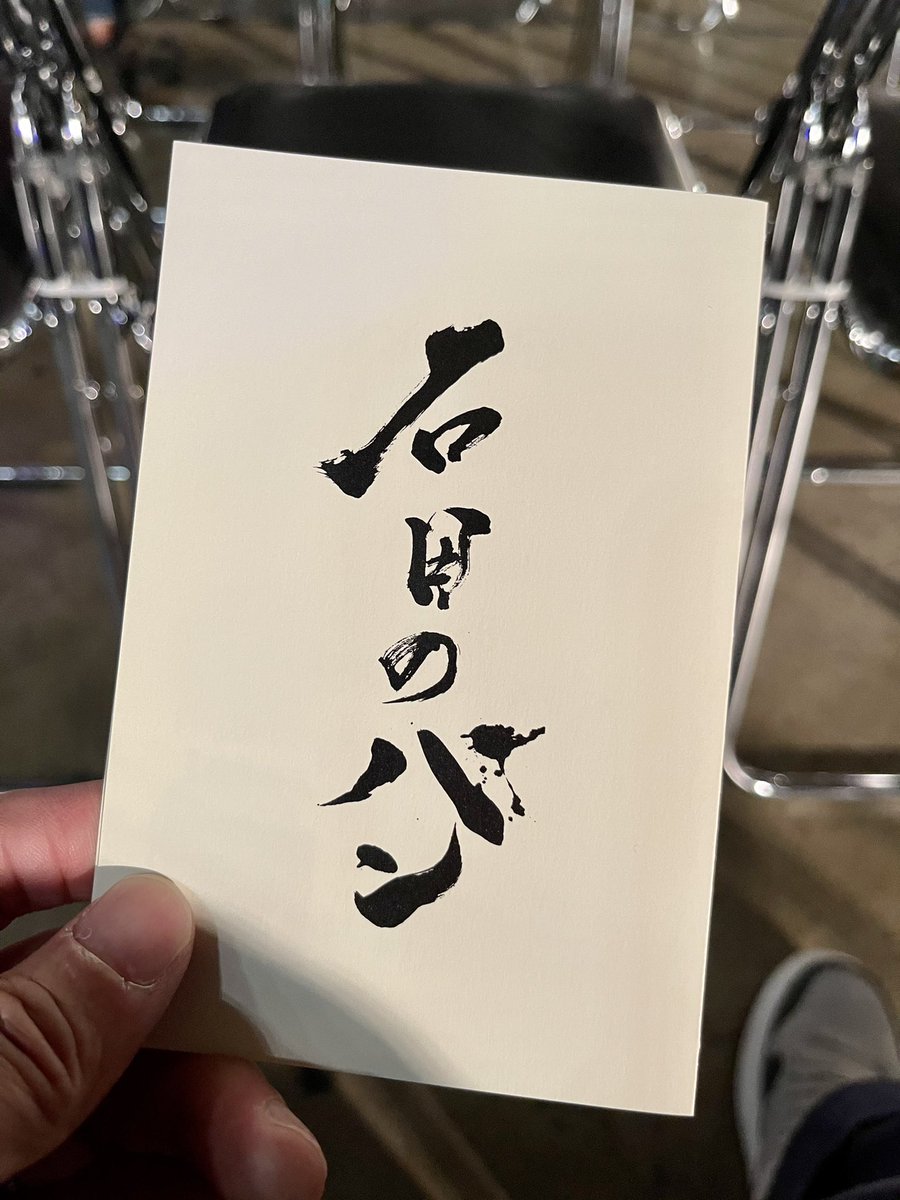 石田のバン